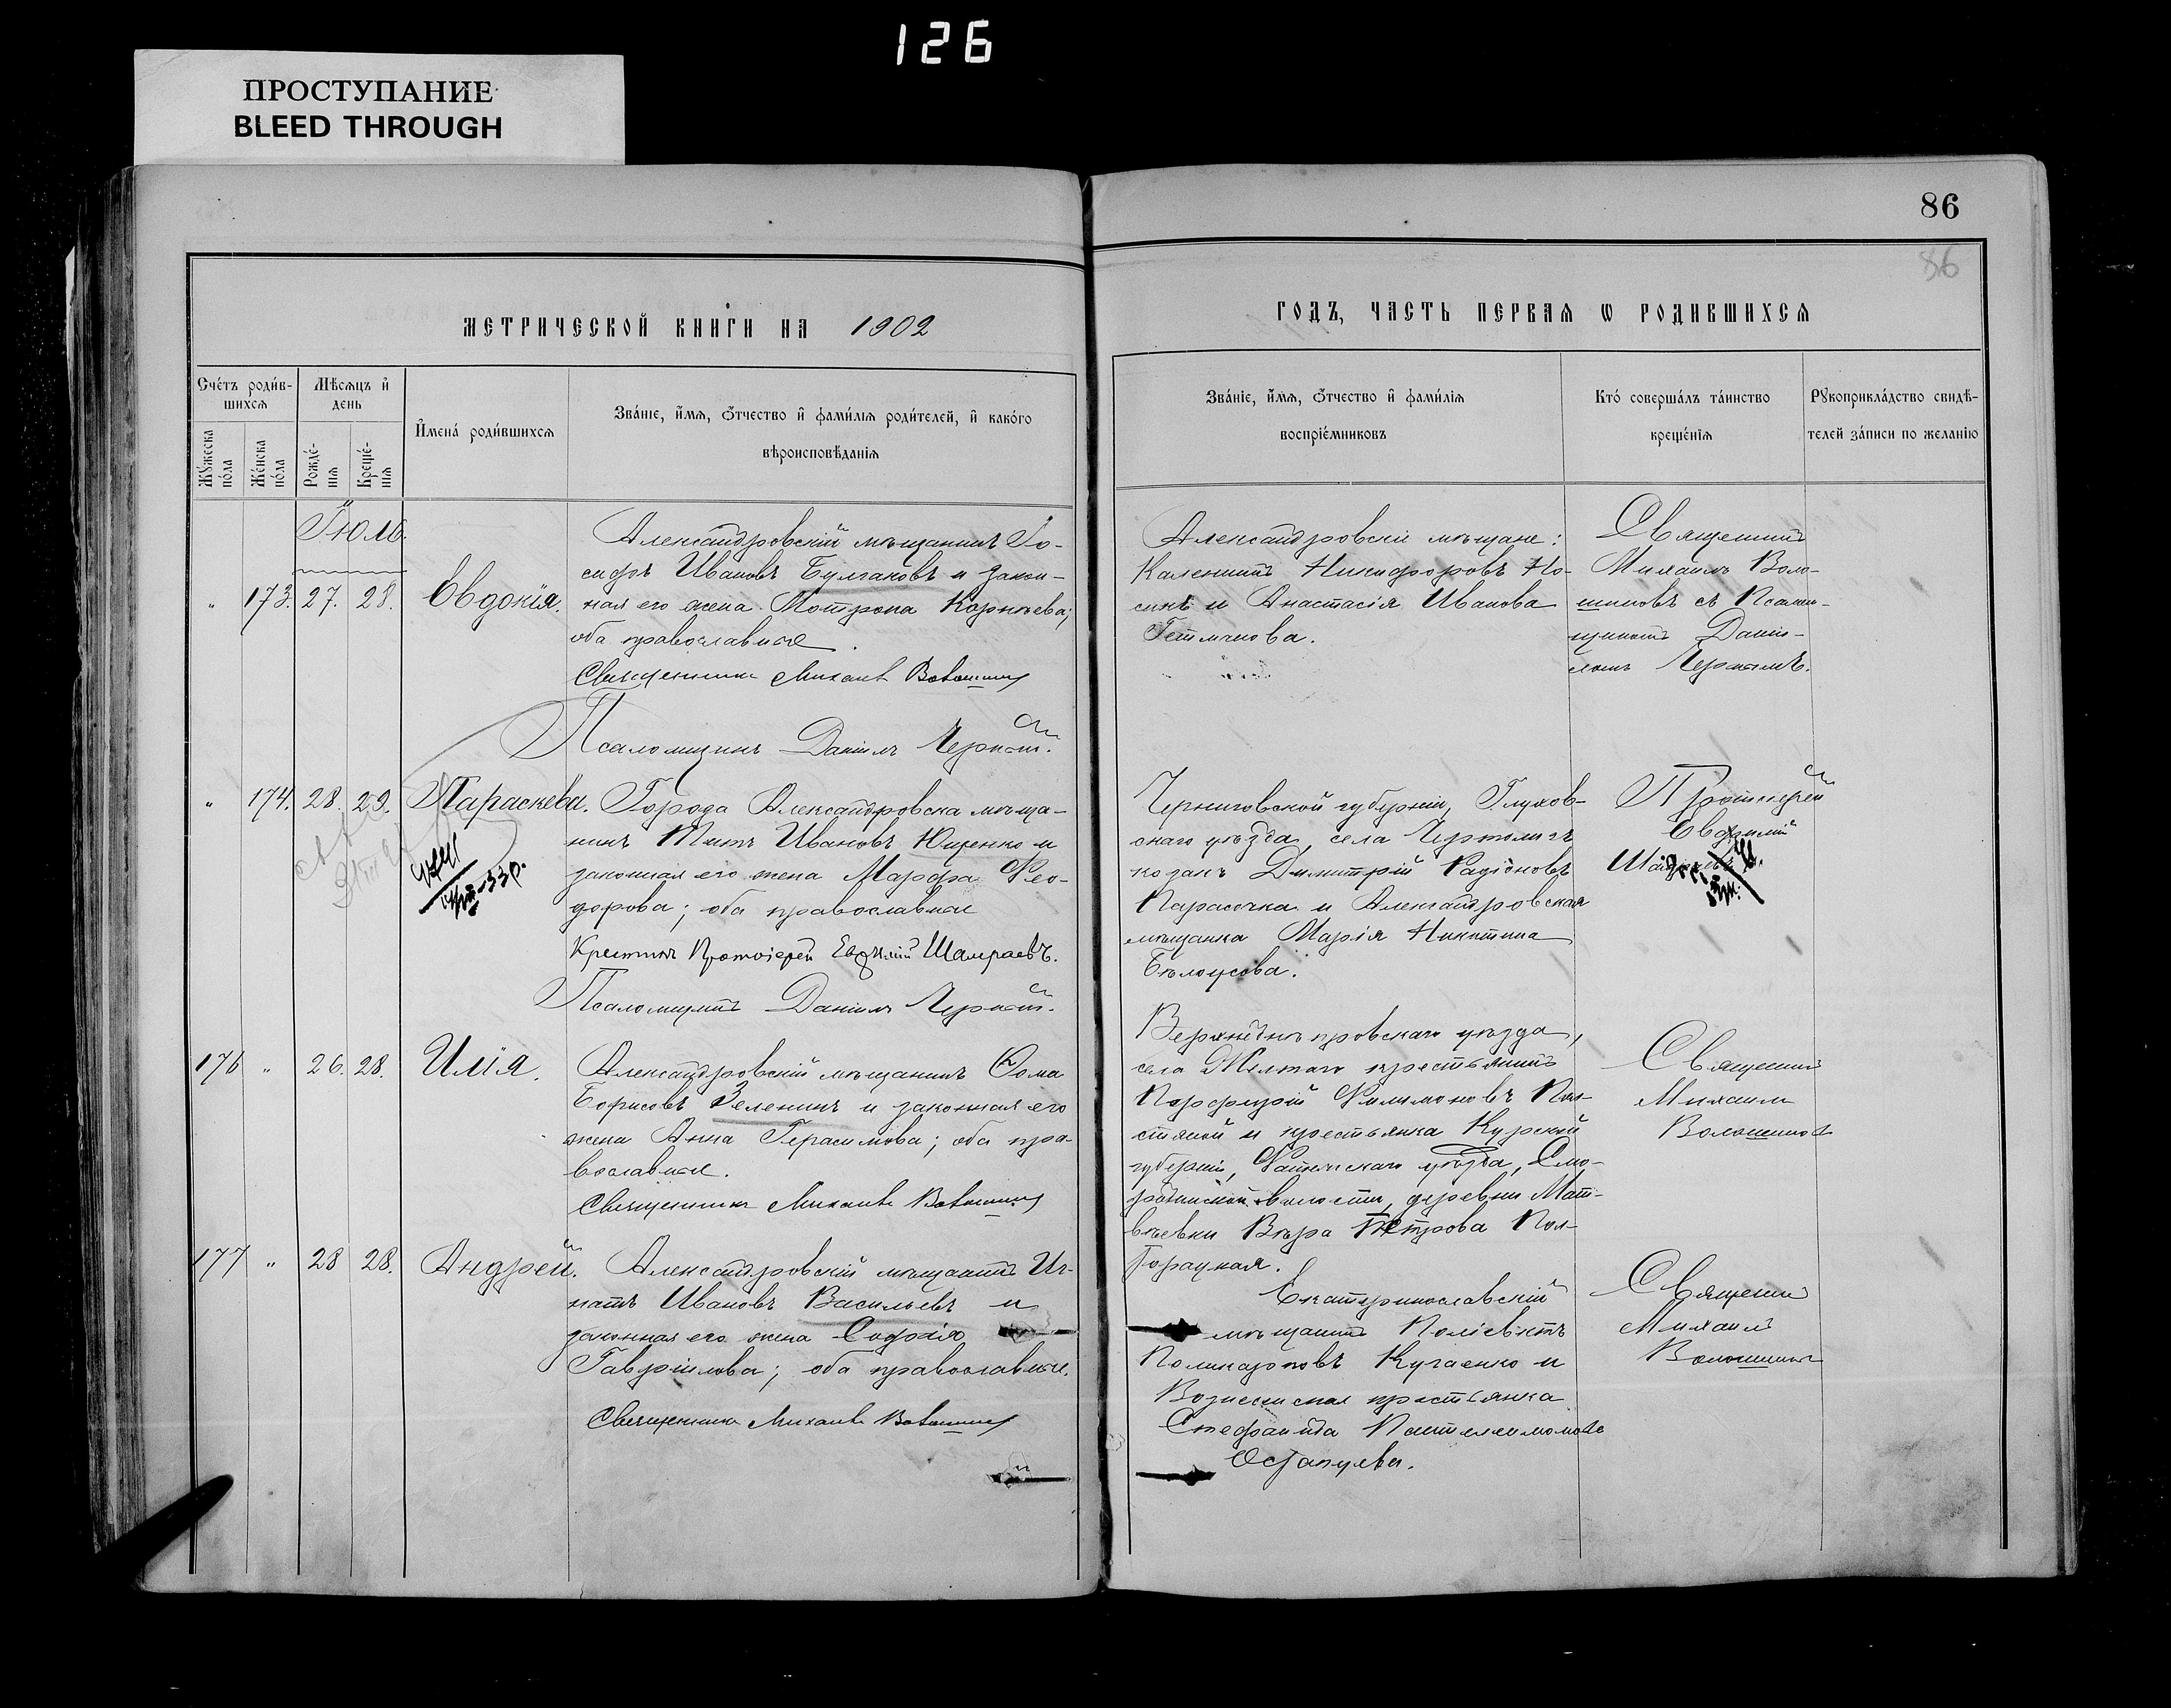 126
ПРОСТУПАНИЕ
BLEED THROUGH
86
86
МЕТРИЧЕСКОЙ КНИГИ НА 1902
ГОДЪ, ЧАСТЬ ПЕРВАЯ Ѡ РОДИВШИХСѦ
Сче́тъ роди́в-
шихсѧ
Мѣсѧцъ и҆
день
Мꙋжеска
по́ла
Же́нска
по́ла
Рожде́-
нїѧ
Креще́-
нїѧ
И҆мена́ роди́вшихсѧ
Зва́нїе, и҆́мѧ, ѻ҆́тчество и҆ фами́лїѧ роди́телей, и҆ како́гѡ
вѣроисповѣ́данїѧ
Зва́нїе, и҆́мѧ, ѻ҆́тчество и҆ фами́лїѧ
воспрїе́мниковъ
Кто̀ соверша́лъ та́инство
креще́нїѧ
Рꙋкоприкла́дство свидѣ́-
телей за́писи по жела́нїю
Іюль.
" 173. 27. 28. Евдокія.
Александровскій мѣщанинъ Іо-
сифъ Ивановъ Булгаковъ и закон-
ная его жена Мотрона Корнѣева;
оба православные.
Священникъ Михаилъ Волошиновъ
Псаломщикъ Даніилъ
Александровскіе мѣщане:
Никифоровъ Но-
синъ и Анастасія Иванова
Священникъ
Михаилъ Воло-
шиновъ съ Псалом-
щикомъ Даніи-
ломъ
" 174. 28. 29. Параскева.
Города Александровска мѣща-
нинъ Титъ Ивановъ Ющенко и
законная его жена Марфа Ѳео-
дорова; оба православные
Крестилъ Протоіерей Евфимій Шамраевъ.
Псаломщикъ Даніилъ
Черниговской губерніи, Глухов-
скаго уѣзда, села
козакъ Димитрій Радіоновъ
и Александровская
мѣщанка Марія Никитина
Бѣлоусова.
Протоіерей
Евфимій
176 " 26. 28. Илія.
Александровскій мѣщанинъ Ѳома
Борисовъ Зеленинъ и законная его
жена Анна Герасимова; оба пра-
вославные.
Священникъ Михаилъ Волошиновъ
Верхнеднѣпровскаго уѣзда,
села Желтаго крестьянинъ
Порфирій Филимоновъ Пол-
стяной и крестьянка Курской
губерніи, уѣзда, Смо-
родинской волости, деревни Мат-
вѣевки Вѣра Петрова Пол-
торацкая.
Священникъ
Михаилъ
Волошиновъ
177 " 28 28. Андрей.
Александровскій мѣщанинъ Иг-
натъ Ивановъ Васильевъ и
законная его жена Софія
Гавріилова; оба православные.
Священникъ Михаилъ Волошиновъ
Екатеринославскій
мѣщанинъ Поліевктъ
Поликарповъ Кучаенко и
Вознесенская крестьянка
Стефанида Пантелеимонова
Священникъ
Михаилъ
Волошиновъ